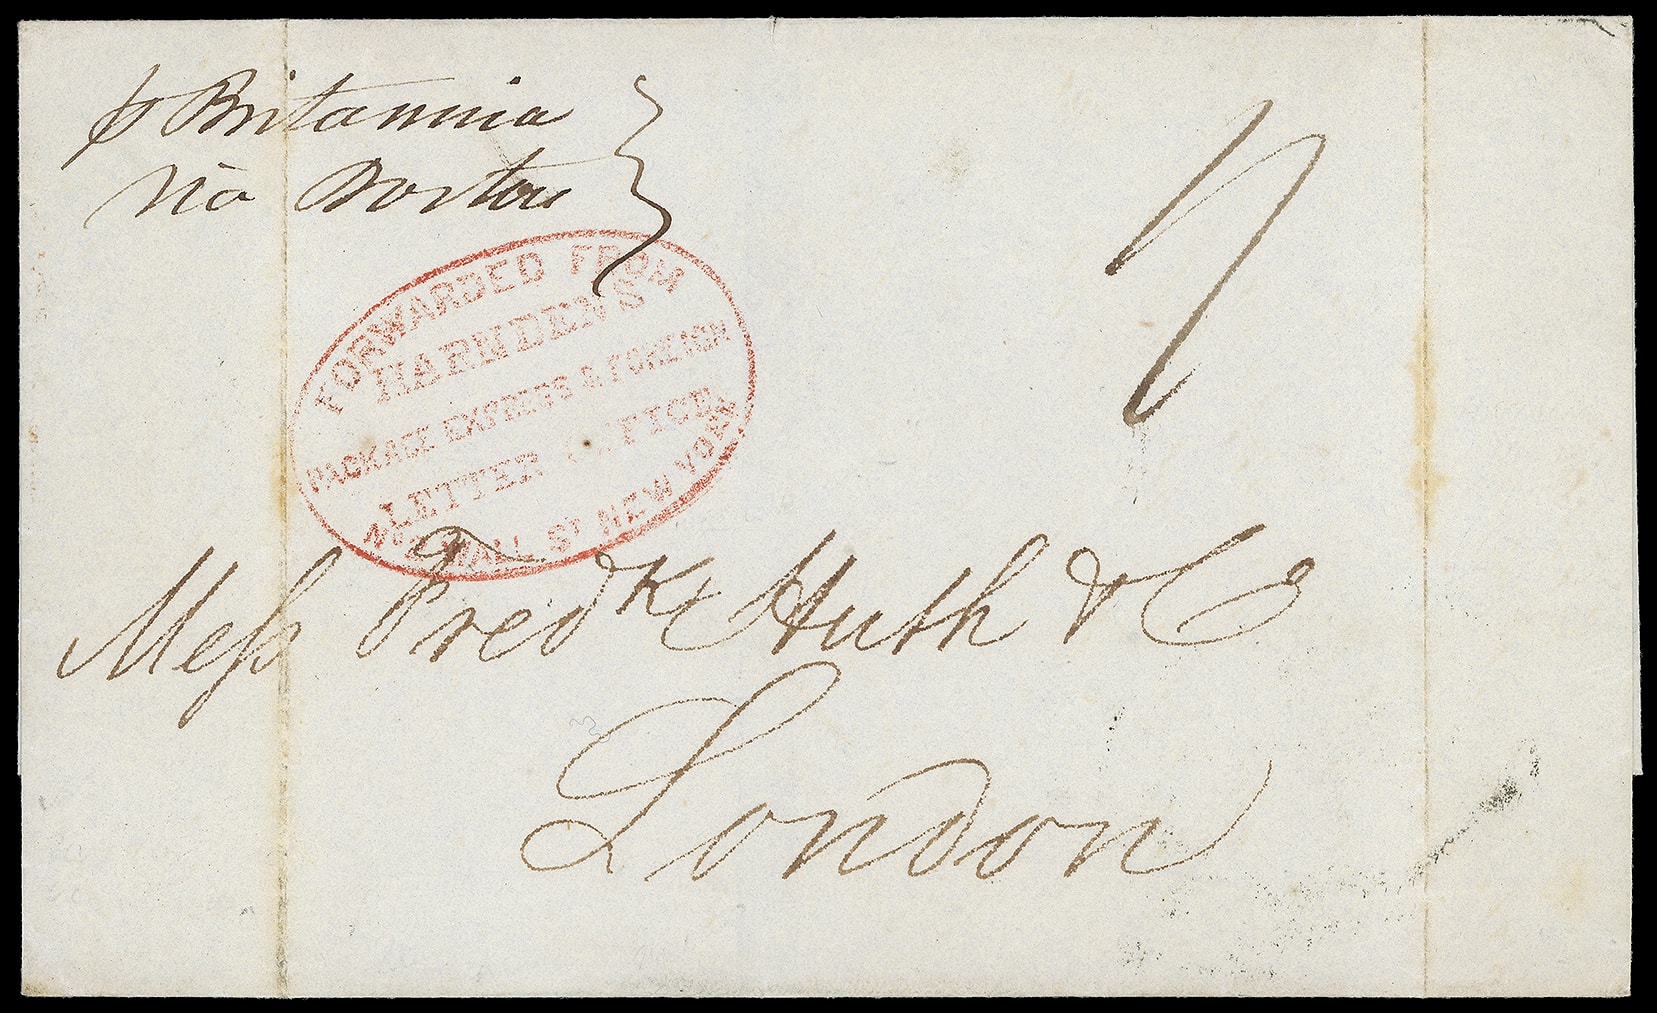 p Britannia
via Boston
FORWARDED FROM
HARNDEN'S
PACKAGE EXPRESS & FOREIGN
LETTER OFFICE
No 3 WALL St NEW YORK
Mess Fredk Huth & Co
London